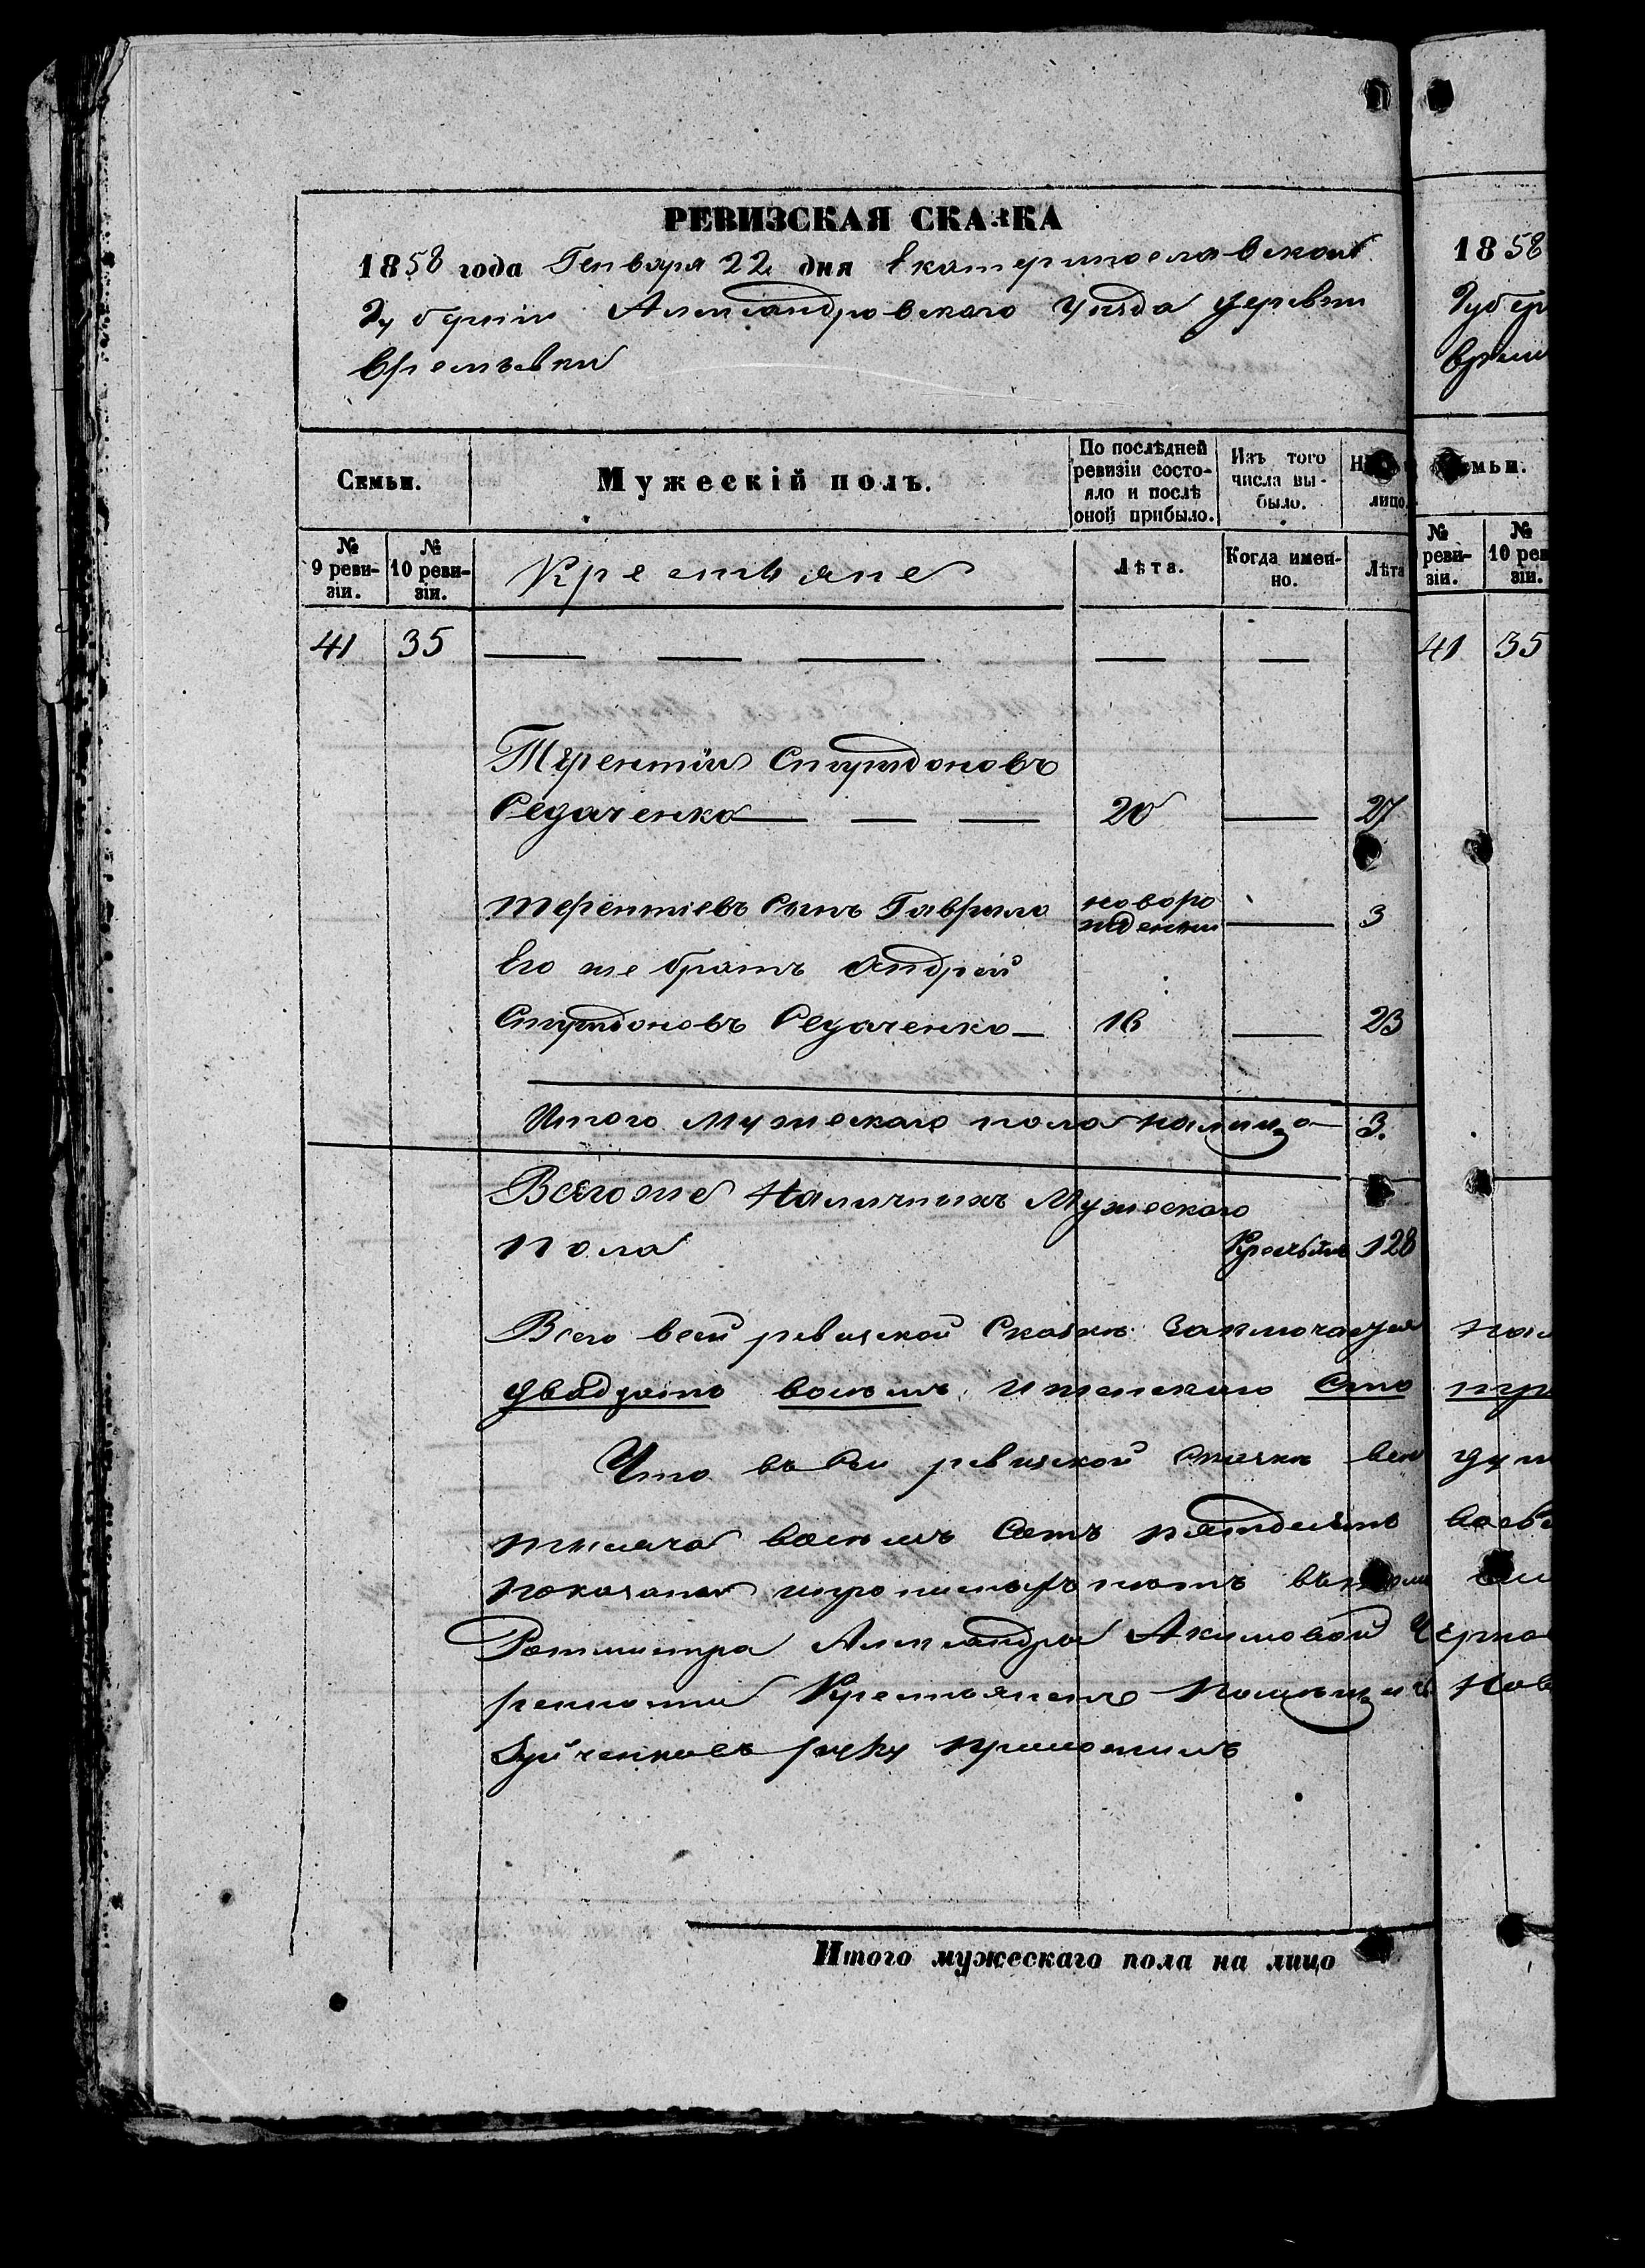 РЕВИЗСКАЯ СКАЗКА
1858 года Генваря 22 дня Екатеринославской
Губернии Александровскаго Уѣзда деревни
Времьевки
Семьи.
Мужескій полъ.
По послѣдней ревизіи состо-
яло и послѣ
оной прибыло.
Изъ того
числа вы-
было.
лицо.
№
9 реви-
зіи.
№
10 реви-
зіи.
Крестьяне
Лѣта.
Когда имен-
но.
Лѣта
41 35
Терентій Спиридоновъ
Редаченко 20 27
Терентіевъ Сынъ Гаврило новоро
жденны 3
Его же братъ Андрей
Спиридоновъ Редаченко 16 23
Итого Мужескаго пола налицо 3.
Всего же Наличныхъ Мужескаго
пола Крестьянъ 128
Всего всей ревизской Сказкѣ Заключается
двадцать восемь и женскаго Сто
Что въ сей ревизской сказкѣ все
тысяча восемь Сотъ пятьдесятъ
показаны
Ротмистра Александра Акимовой
Крестьянинъ
руку приложилъ
Итого мужескаго пола на лицо
1858
Губер
Врем
мьи.
№
реви-
зіи.
№
10 рев
зіи.
41 35